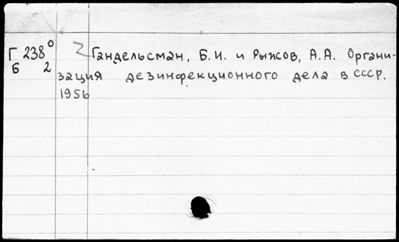 Г 238° Гандельсман, Б.И. и Рыжов, А.А. Органи-
Б 2 зация дезинфекционного дела в СССР.
1956